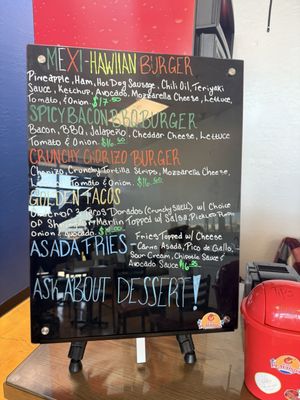 MEXI-HAWIIAN BURGER
Pineapple, Ham, Hot Dog Sausage, Chili Oil, Teriyaki
Sauce, Ketchup, Avocado, Mozzarella Cheese, Lettuce,
Tomato, & Onion. $17.50
SPICY BACON BBQ BURGER
Bacon, BBQ, Jalapeño, Cheddar Cheese, Lettuce
Tomato & Onion. $16.50
CRUNCHY CHORIZO BURGER
Chorizo, Crunchy Tortilla Strips, Mozzarella Cheese,
Tomato & Onion. $16.50
GOLDEN TACOS
Order of 3 Tacos Dorados (Crunchy Shell) w/ Choice
OF Marlin Topped w/ Salsa, Pickled
Onion & Avocado.
ASADA FRIES - Fries Topped w/ Cheese
Carne Asada, Pico de Gallo,
Sour Cream, Chipotle Sauce &
Avocado Sauce $16.50
ASK ABOUT DESSERT!